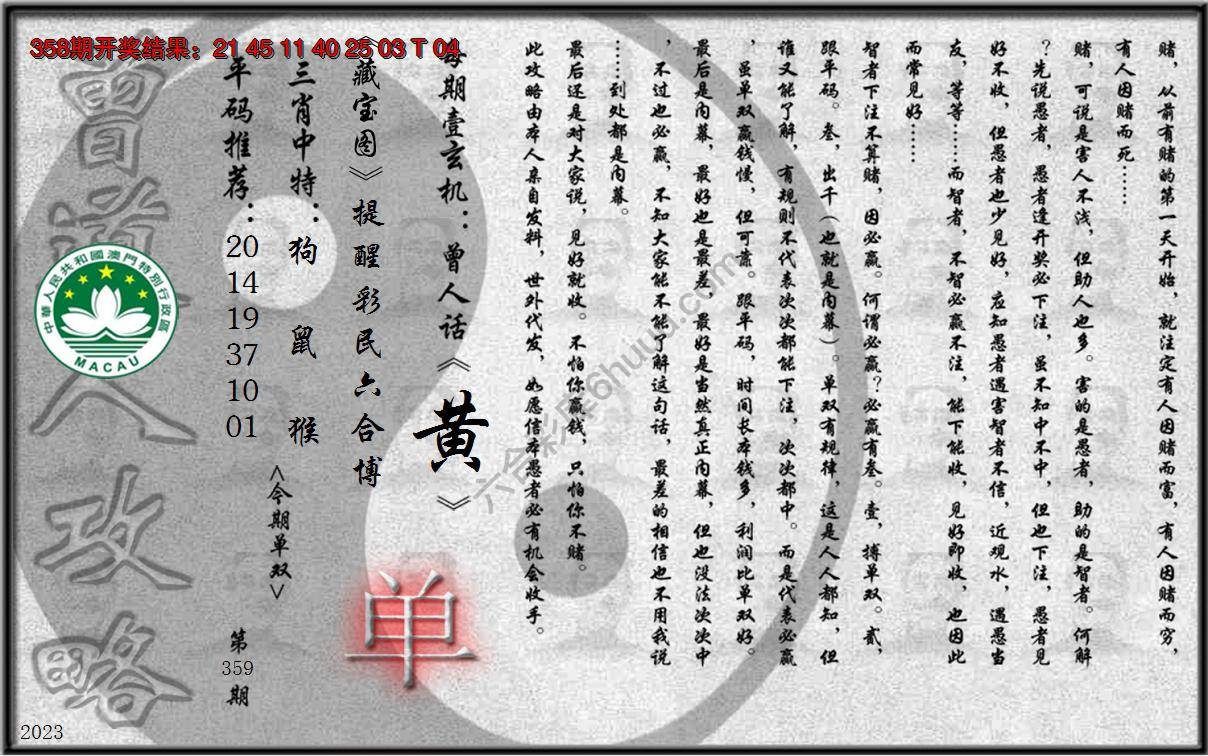 358期开奖结果：21 45 11 40 25 03 T 04
赌，从前有赌的第一天开始，就注定有人因赌而富，有人因赌而穷，
有人因赌而死……
赌，可说是害人不浅，但助人也多。害的是愚者，助的是智者。何解
？先说愚者，愚者逢开奖必下注，虽不知中不中，但也下注，愚者见
好不收，但愚者也少见好，应知愚者遇害智者不信，近观水，遇愚当
友，等等……而智者，不智必赢不注，能下能收，见好即收，也因此
而常见好……
智者下注不算赌，因必赢。何谓必赢？必赢有叁。壹，搏单双。贰，
跟平码。叁，出千（也就是内幕）。单双有规律，这是人人都知，但
谁又能了解，有规则不代表次次都能下注，次次都中。而是代表必赢
，虽单双赢钱慢，但可靠。跟平码，时间长本钱多，利润比单双好。
最后是内幕，最好也是最差，最好是当然真正内幕，但也没法次次中
，不过也必赢，不知大家能不能了解这句话，最差的相信也不用我说
……到处都是内幕。
最后还是对大家说，见好就收。不怕你赢钱，只怕你不赌。
此攻略由本人亲自发料，世外代发，如愿信本愚者必有机会收手。
每期壹玄机：曾人话《黄》
《藏宝图》提醒彩民六合博
单
三肖中特：狗 鼠 猴
<今期单双>
平码推荐：20 14 19 37 10 01
第359期
曾道人攻略
中華人民共和國澳門特別行政區
MACAU
六合彩库6huuu.com
2023